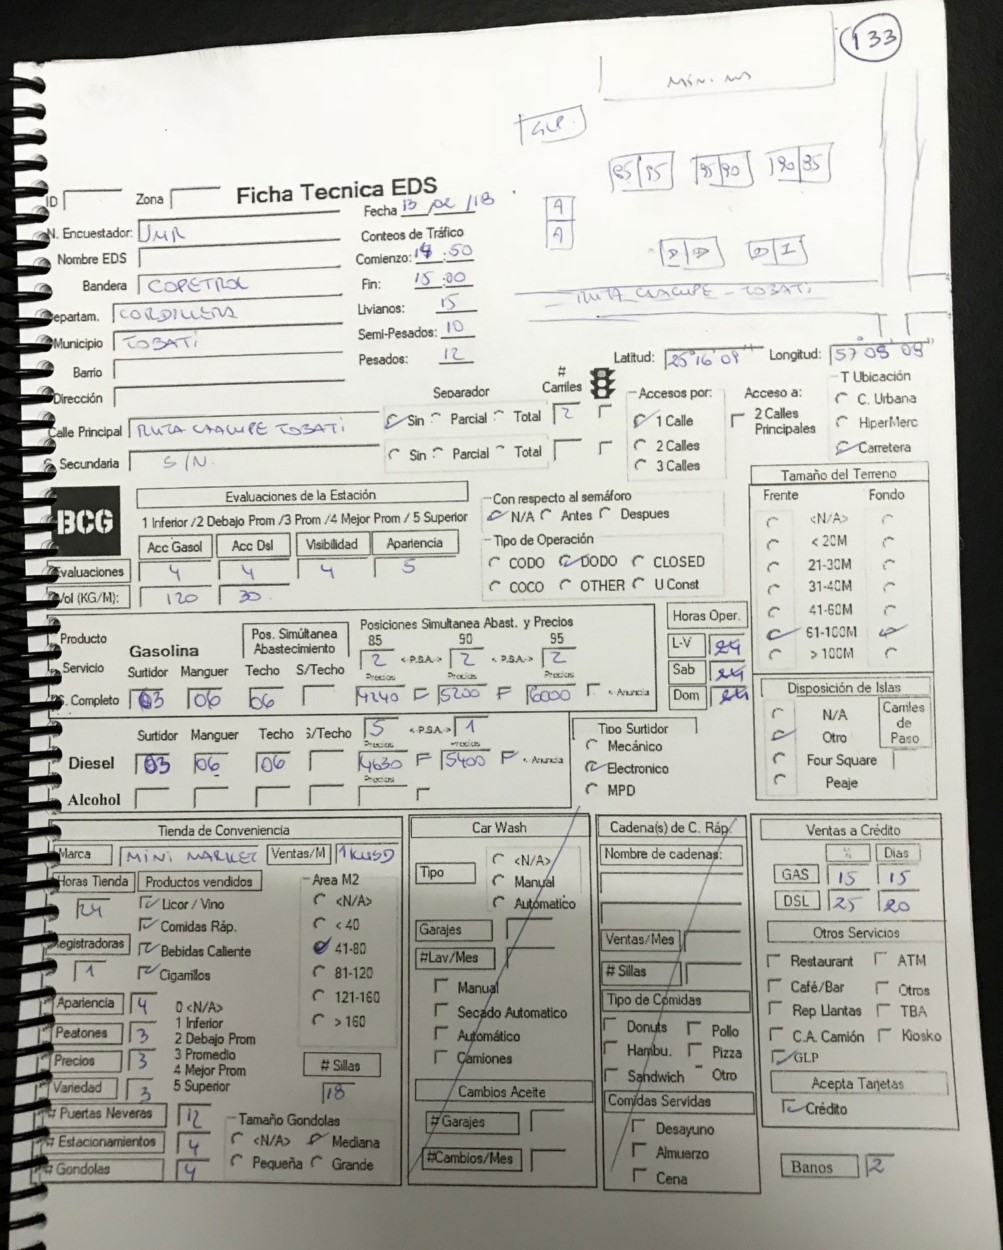 133
GLP.
85 95 95 90 90 85
A
A
D D D I
RUTA CAACUPE - TOBATI
ID Zona Ficha Tecnica EDS
Fecha 13 /02 /18
N. Encuestador: JMR
Conteos de Tráfico
Nombre EDS
Comienzo: 14:50
Bandera COPETROL
Fin: 15:00
Departam. CORDILLERA
Livianos: 15
Municipio TOBATI
Semi-Pesados: 10
Barrio
Pesados: 12
Latitud: 25°16'09" Longitud: 57°05'09"
Dirección
Separador # Carriles
Accesos por: Acceso a: T Ubicación
Calle Principal RUTA CAACUPE TOBATI Sin Parcial Total 2
1 Calle 2 Calles Principales C. Urbana
2 Calles HiperMerc
Secundaria S/N. Sin Parcial Total
3 Calles Carretera
BCG
Evaluaciones de la Estación
1 Inferior /2 Debajo Prom /3 Prom /4 Mejor Prom / 5 Superior
Acc Gasol Acc Dsl Visibilidad Apariencia
Evaluaciones 4 4 4 5
Vol (KG/M): 120 30
Con respecto al semáforo
N/A Antes Despues
Tipo de Operación
CODO DODO CLOSED
COCO OTHER U Const
Tamaño del Terreno
Frente Fondo
<N/A>
< 20M
21-30M
31-40M
41-60M
61-100M
> 100M
Producto Gasolina Pos. Simúltanea Abastecimiento
Posiciones Simultanea Abast. y Precios
85 90 95
Servicio Surtidor Manguer Techo S/Techo
2 <-P.S.A.-> 2 <-P.S.A.-> 2
Precios Precios Precios
S. Completo 03 06 06 4240 5200 6000 <- Anuncia
Horas Oper.
L-V 24
Sab 24
Dom 24
Surtidor Manguer Techo S/Techo 5 <-P.S.A.-> 1
Precios Precios
Diesel 03 06 06 4630 5400 <- Anuncia
Precios
Alcohol
Tipo Surtidor
Mecánico
Electronico
MPD
Disposición de Islas
N/A Carriles de Paso
Otro
Four Square
Peaje
Tienda de Conveniencia
Marca MINI MARKET Ventas/M 1KUSD
Horas Tienda Productos vendidos Area M2
24 Licor / Vino <N/A>
Comidas Ráp. < 40
Registradoras Bebidas Caliente 41-80
1 Cigarrillos 81-120
Apariencia 4 0 <N/A> 121-160
Peatones 3 1 Inferior > 160
2 Debajo Prom
Precios 3 3 Promedio
4 Mejor Prom # Sillas
Variedad 3 5 Superior 18
# Puertas Neveras 12 Tamaño Gondolas
# Estacionamientos 4 <N/A> Mediana
# Gondolas 4 Pequeña Grande
Car Wash
Tipo <N/A>
Manual
Automatico
Garajes
#Lav/Mes
Manual
Secado Automatico
Automático
Camiones
Cambios Aceite
#Garajes
#Cambios/Mes
Cadena(s) de C. Ráp.
Nombre de cadenas:
Ventas/Mes
# Sillas
Tipo de Comidas
Donuts Pollo
Hambu. Pizza
Sandwich Otro
Comidas Servidas
Desayuno
Almuerzo
Cena
Ventas a Crédito
% Dias
GAS 15 15
DSL 25 20
Otros Servicios
Restaurant ATM
Café/Bar Otros
Rep Llantas TBA
C.A. Camión Kiosko
GLP
Acepta Tarjetas
Crédito
Banos 2